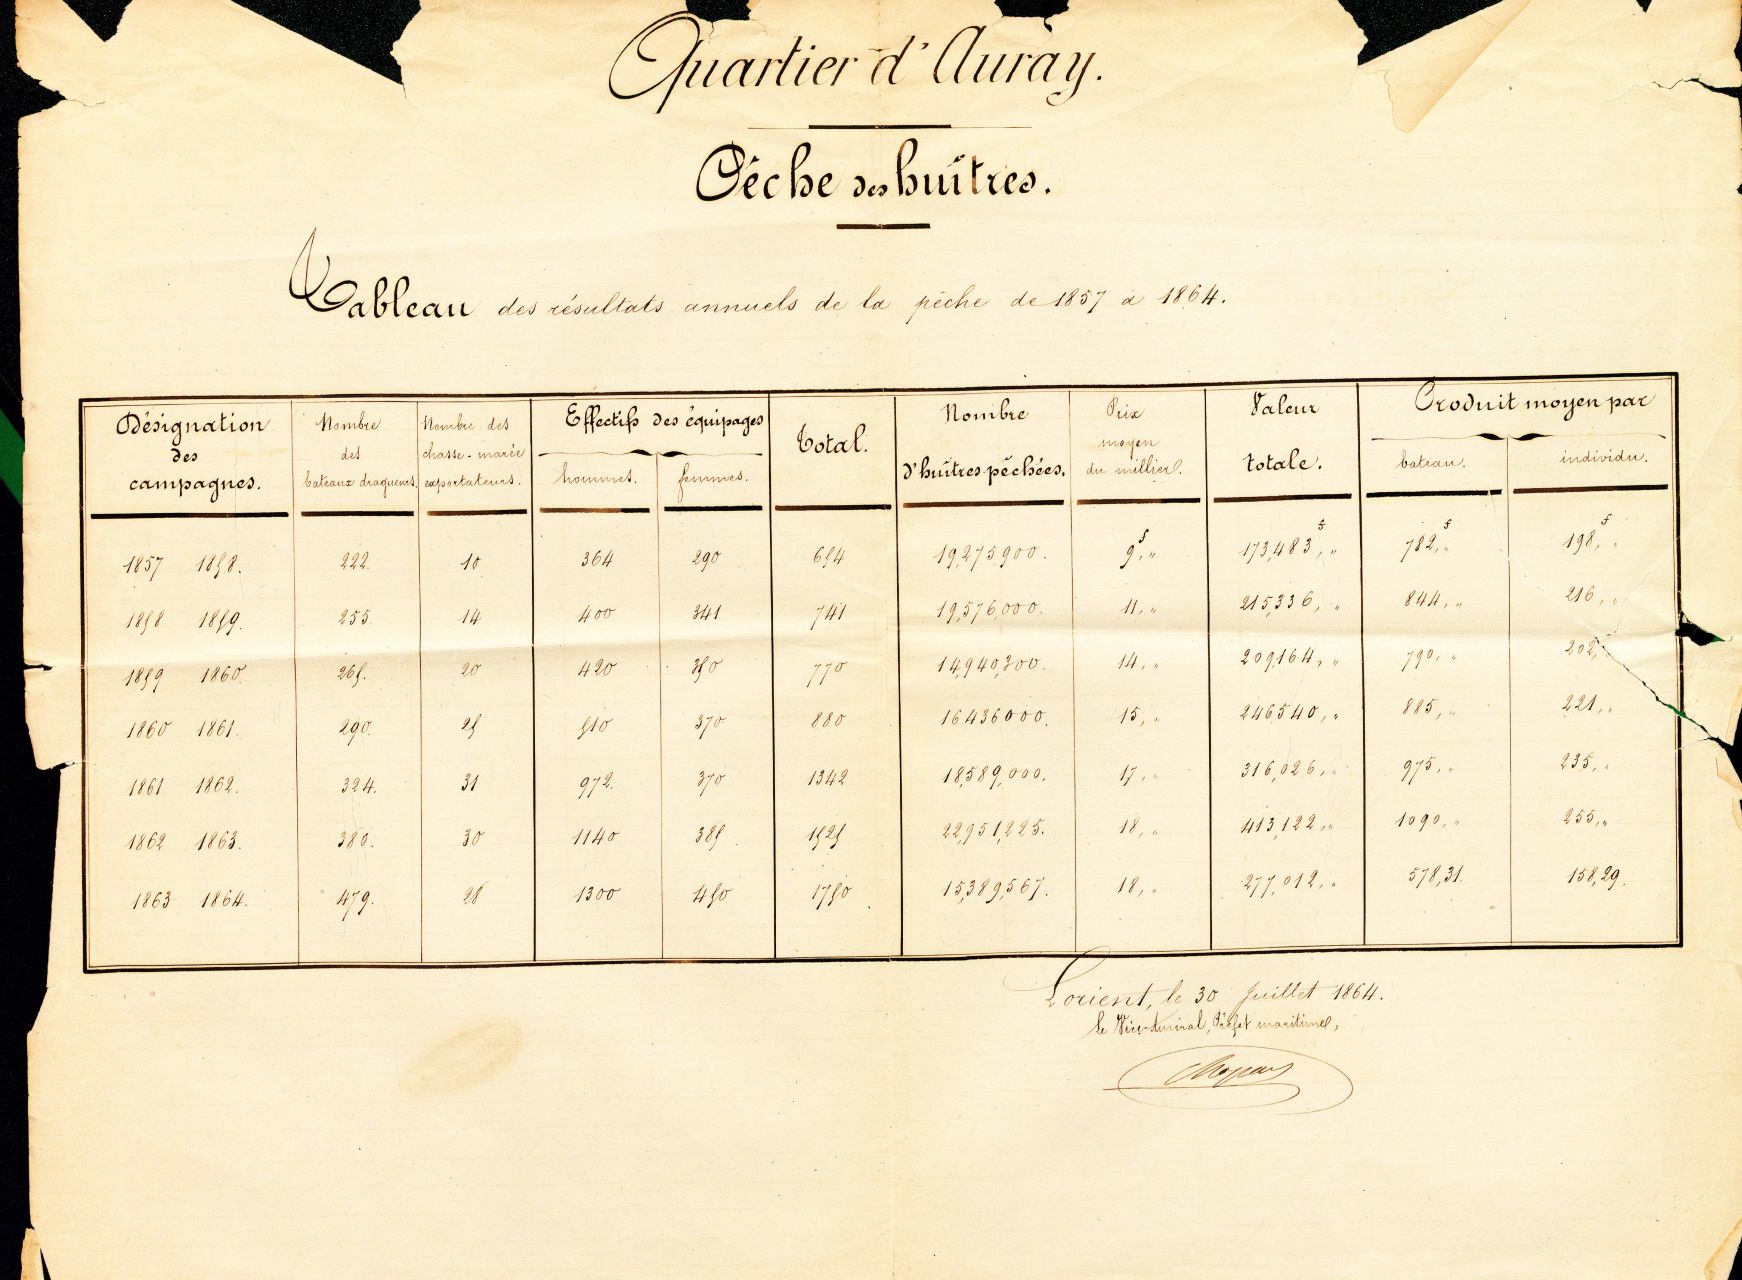 Quartier d'Auray.
Pêche des huîtres.
Tableau des résultats annuels de la pêche de 1857 à 1864.
Désignation des campagnes. Nombre des bateaux dragueurs. Nombre des chasse-marée exportateurs. Effectifs des équipages hommes. femmes. Total. Nombre d'huîtres pêchées. Prix moyen du millier. Valeur totale. Produit moyen par bateau. individu.
1857 1858. 222. 10 364 290 654 19,275,900. 9f," 173,483f," 782f," 198f,"
1858 1859. 255. 14 400 341 741 19,576,000. 11," 215,336," 844," 216,"
1859 1860. 265. 20 420 350 770 14,940,300. 14," 209,164," 790," 202,"
1860 1861. 290. 25 510 370 880 16436000. 15," 246540," 885," 221,"
1861 1862. 324. 31 972. 370 1342 18,589,000. 17," 316,026," 975," 235,"
1862 1863. 380. 30 1140 385. 1525 22,951,225. 18," 413,122," 1090," 255,"
1863 1864. 479. 28 1300 450 1750 15,389,567. 18," 277,012," 578,31. 158,29.
Lorient, le 30 Juillet 1864.
le Vice-Amiral, Préfet maritime,